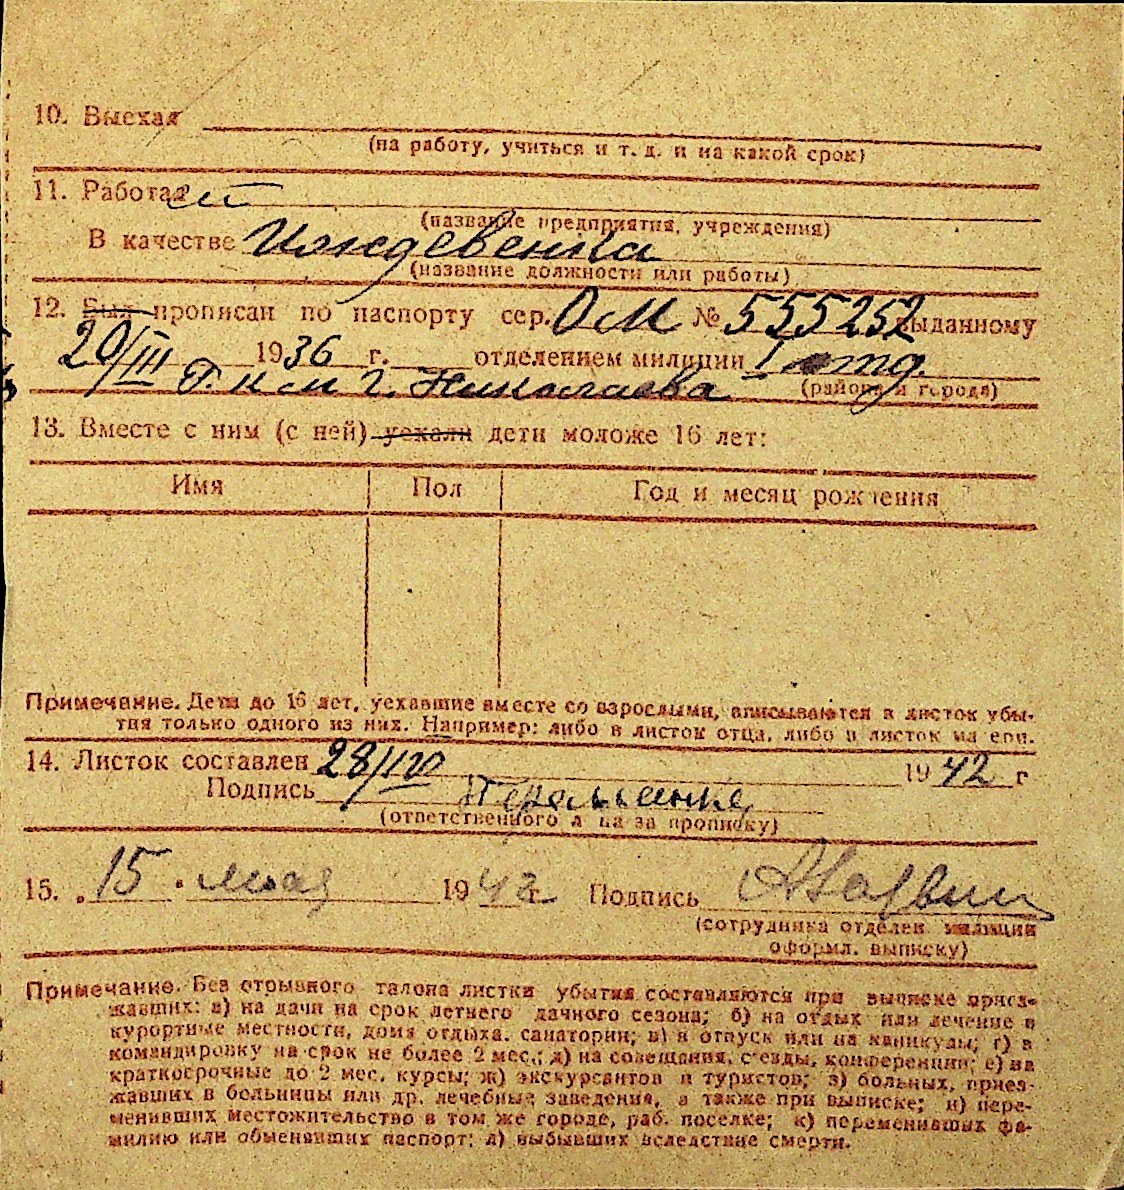 10. Выехал
(на работу, учиться и т. д. и на какой срок)
11. Работает
(название предприятия, учреждения)
В качестве Иждевенка
(название должности или работы)
12. Был прописан по паспорту сер. ОМ № 555252 выданному
20/III 1936 г. отделением милиции I отд.
Г. К М г. Николаева (района и города)
13. Вместе с ним (с ней) уехали дети моложе 16 лет:
Имя Пол Год и месяц рождения
Примечание. Дети до 16 лет, уехавшие вместе со взрослыми, вписываются в листок убы-
тия только одного из них. Например: либо в листок отца, либо в листок матери.
14. Листок составлен 28/IV 1942 г
Подпись
(ответственного лица за прописку)
15. „15" мая 1942 г. Подпись
(сотрудника отделен. милиции
оформл. выписку)
Примечание. Без отрывного талона листки убытия составляются при выписке приез-
жавших: а) на дачи на срок летнего дачного сезона; б) на отдых или лечение в
курортные местности, дома отдыха, санатории; в) в отпуск или на каникулы; г) в
командировку на срок не более 2 мес.; д) на совещания, с'езды, конференции; е) на
краткосрочные до 2 мес. курсы; ж) экскурсантов и туристов; з) больных, приез-
жавших в больницы или др. лечебные заведения, а также при выписке; и) пере-
менивших местожительство в том же городе, раб. поселке; к) переменивших фа-
милию или обменявших паспорт; л) выбывших вследствие смерти.